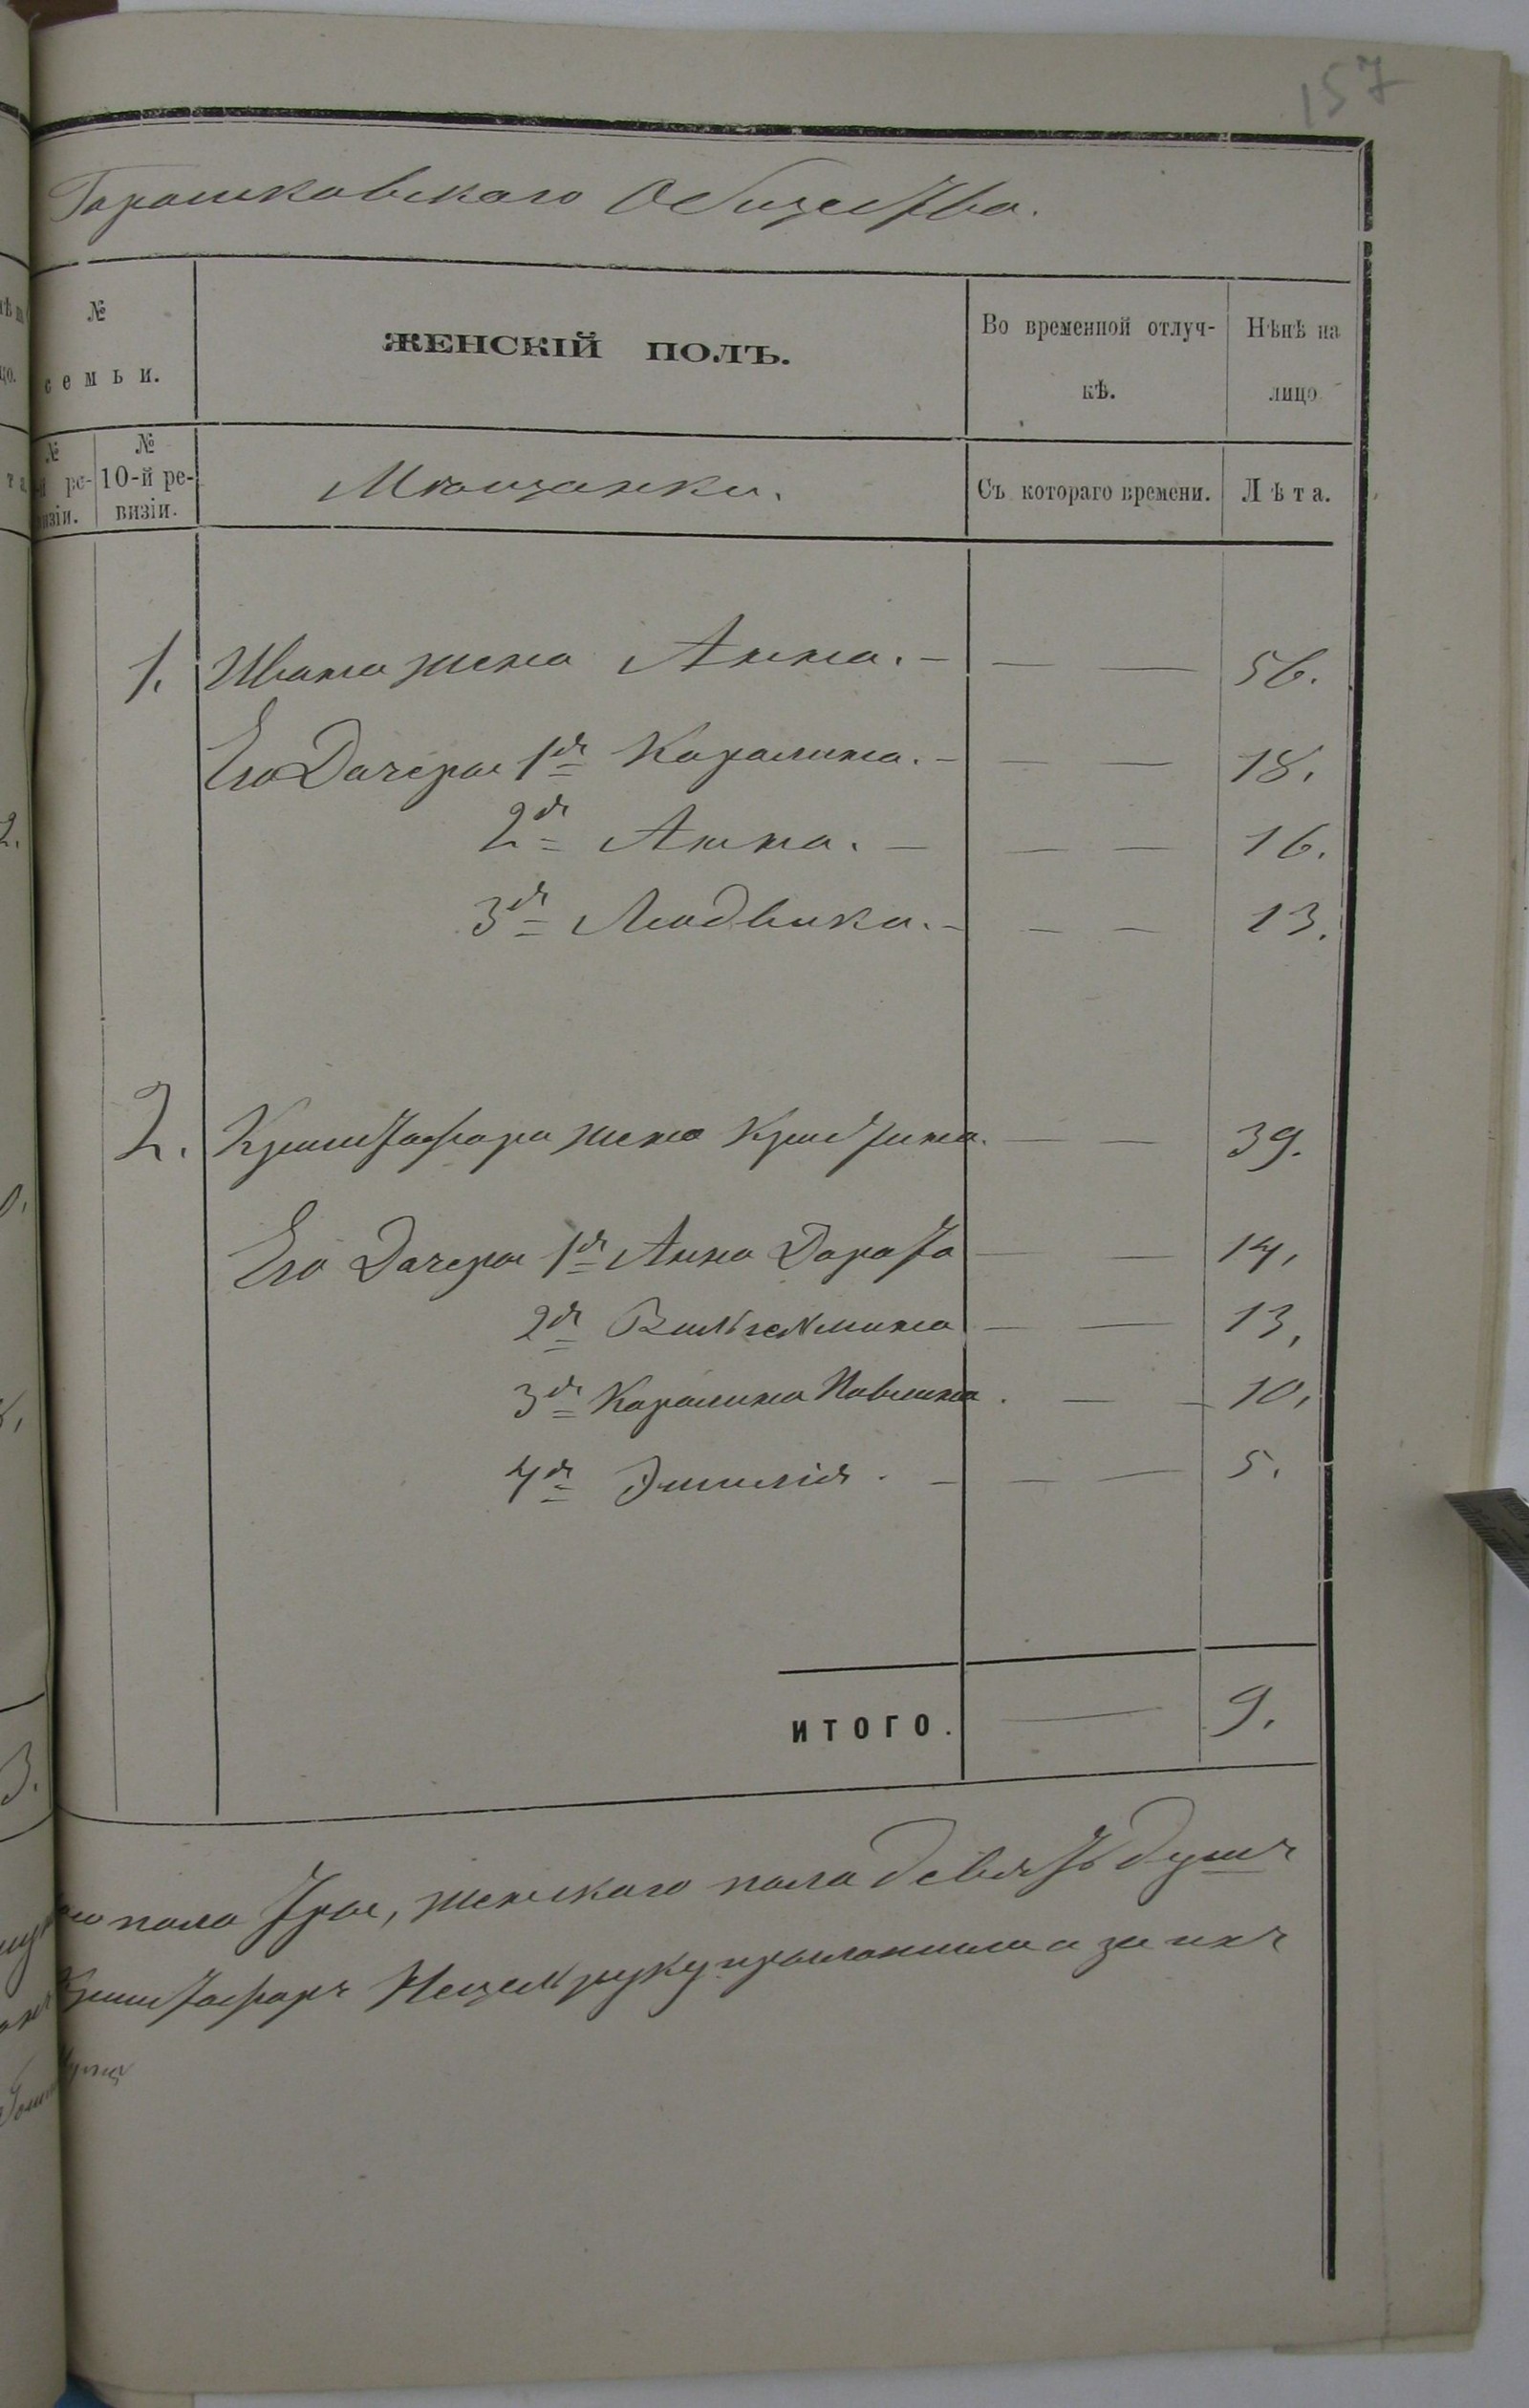 157
Горошковскаго Общества.
№
семьи.
ЖЕНСКІЙ ПОЛЪ.
Во временной отлуч-
кѣ.
Нѣнѣ на
лицо
№
ре-
визіи.
№
10-й ре-
визіи.
Мѣщанки.
Съ котораго времени.
Лѣта.
1. Ивана жена Анна. — — — 56.
Его Дочери 1я Каралина. — — — 18.
2я Анна. — — — 16.
3я Людвика. — — — 13.
2. Криштафора жена Кристина. — — 39.
Его Дочери 1я Анна Дарота — — 14.
2я Вильгельмина — — 13.
3я Каралина Павлина. — — 10.
4я Эмилія. — — — 5.
ИТОГО. — 9.
пола трое, женскаго пола девять душъ
Криштафоръ руку приложилъ а за ихъ